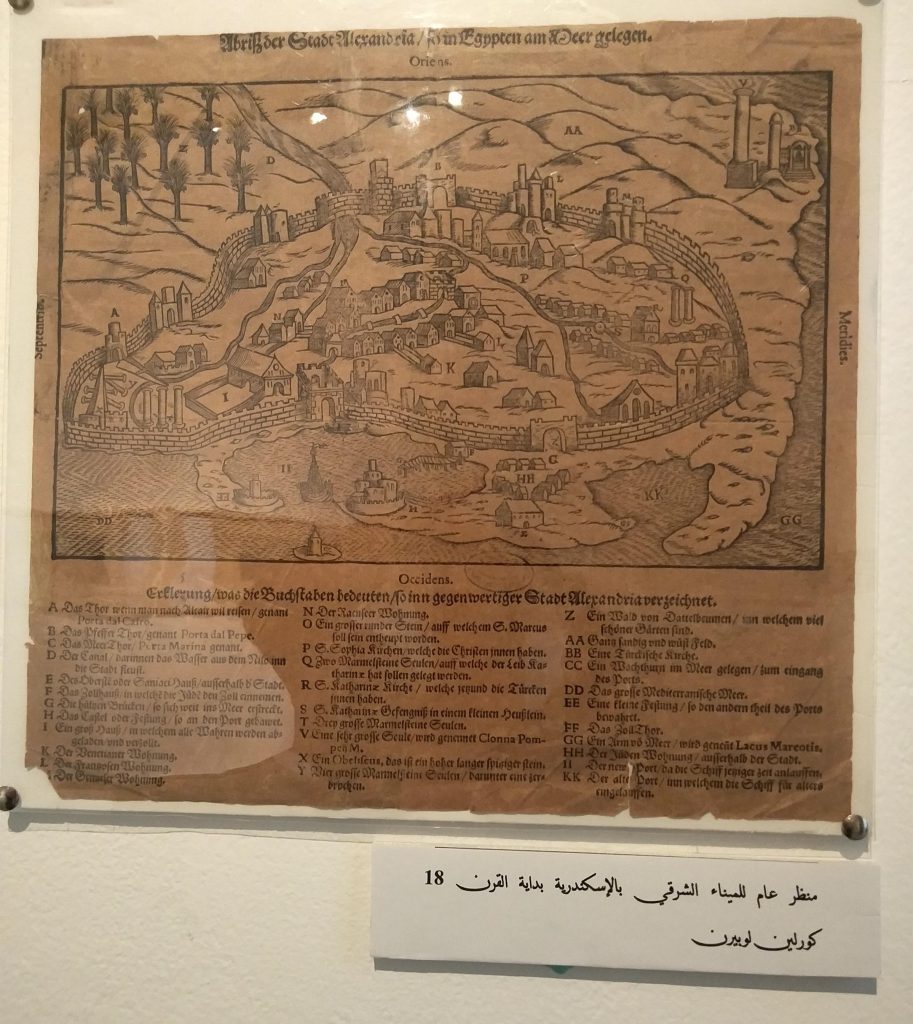 Abriß der Stadt Alexandria / so in Egypten am Meer gelegen.
Oriens.
Meridies.
Occidens.
Erklerung / was die Buchstaben bedeuten / so inn gegenwertiger Stadt Alexandria verzeichnet.
A Das Thor wenn man nach Alcair wil reisen / genant
Porta dal Cairo.
B Das Pfeffer Thor / genant Porta dal Pepe.
C Das Meer Thor / Porta Marina genant.
D Der Canal / darinnen das Wasser aus dem Nilo inn
die Stadt fleust.
E Des Oberste oder Haus / ausserhalb d' Stadt.
F Das Zollhauß / in welche die Jüdē den Zoll einnemen.
G Die Brücken / so sich weit ins Meer erstreckt.
H Das Castel oder Festung / so an den Port gebawet.
I Ein groß Hauß / in welchem alle Wahren werden ab-
geladen und verzolt.
K Der Venetianer Wohnung.
L Der Frantzosen Wohnung.
Der Wohnung.
N Der Raguseer Wohnung.
O Ein grosser runder Stein / auff welchem S. Marcus
soll sein entheupt worden.
P S. Sophia Kirchen / welche die Christen innen haben.
Q Zwo Marmelsteine Seulen / auff welche der Leib Ka-
tharinæ hat sollen gelegt werden.
R S. Katharinæ Kirche / welche jetzund die Türcken
innen haben.
S S. Katharinæ Gefengniß in einem kleinen Heußlein.
T Drey grosse Marmelsteine Seulen.
V Eine sehr grosse Seule / wird genennet Clonna Pom-
peii M.
X Ein Obeliscus, das ist ein hoher langer spitziger stein.
Y Vier grosse Marmelsteine Seulen / darunter eine zer-
brochen.
Z Ein Wald von Dattelbeumen / inn welchem viel
schöner Gärten sind.
AA Gantz sandig und wüst Feld.
BB Eine Türckische Kirche.
CC Ein Wachthurn im Meer gelegen / zum eingang
des Ports.
DD Das grosse Mediterranische Meer.
EE Eine kleine Festung / so den andern theil des Ports
bewahret.
FF Das Zoll Thor.
GG Ein Arm vō Meer / wird genēt Lacus Mareotis.
HH Der Jüden Wohnung / ausserhalb der Stadt.
II Der new Port / da die Schiff jetziger zeit anlauffen.
KK Der alte Port / inn welchem die Schiff für alters
eingelauffen.
منظر عام للميناء الشرقي بالإسكندرية بداية القرن 18
كورلين لوبيرن